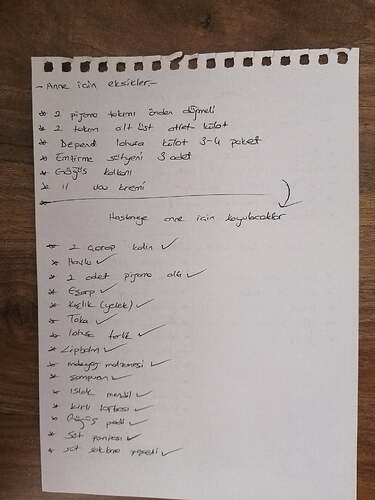 - Anne için eksikler -
* 2 pijama takımı önden düğmeli
* 2 takım alt üst atlet külot
* Depend lohusa külot 3-4 paket
* Emzirme sütyeni 3 adet
* Göğüs kalkanı
* " ucu kremi
*
Hastaneye anne için koyulacaklar
* 2 çorap kalın ✓
* Havlu ✓
* 2 adet pijama altı ✓
* Eşarp ✓
* Kışlık (yelek) ✓
* Toka ✓
* lohusa terlik ✓
* Lipbalm ✓
* makyaj malzemesi ✓
* şampuan ✓
* Islak mendil ✓
* kirli torbası ✓
* Göğüs pedi ✓
* Süt pompası ✓
* süt saklama poşeti ✓